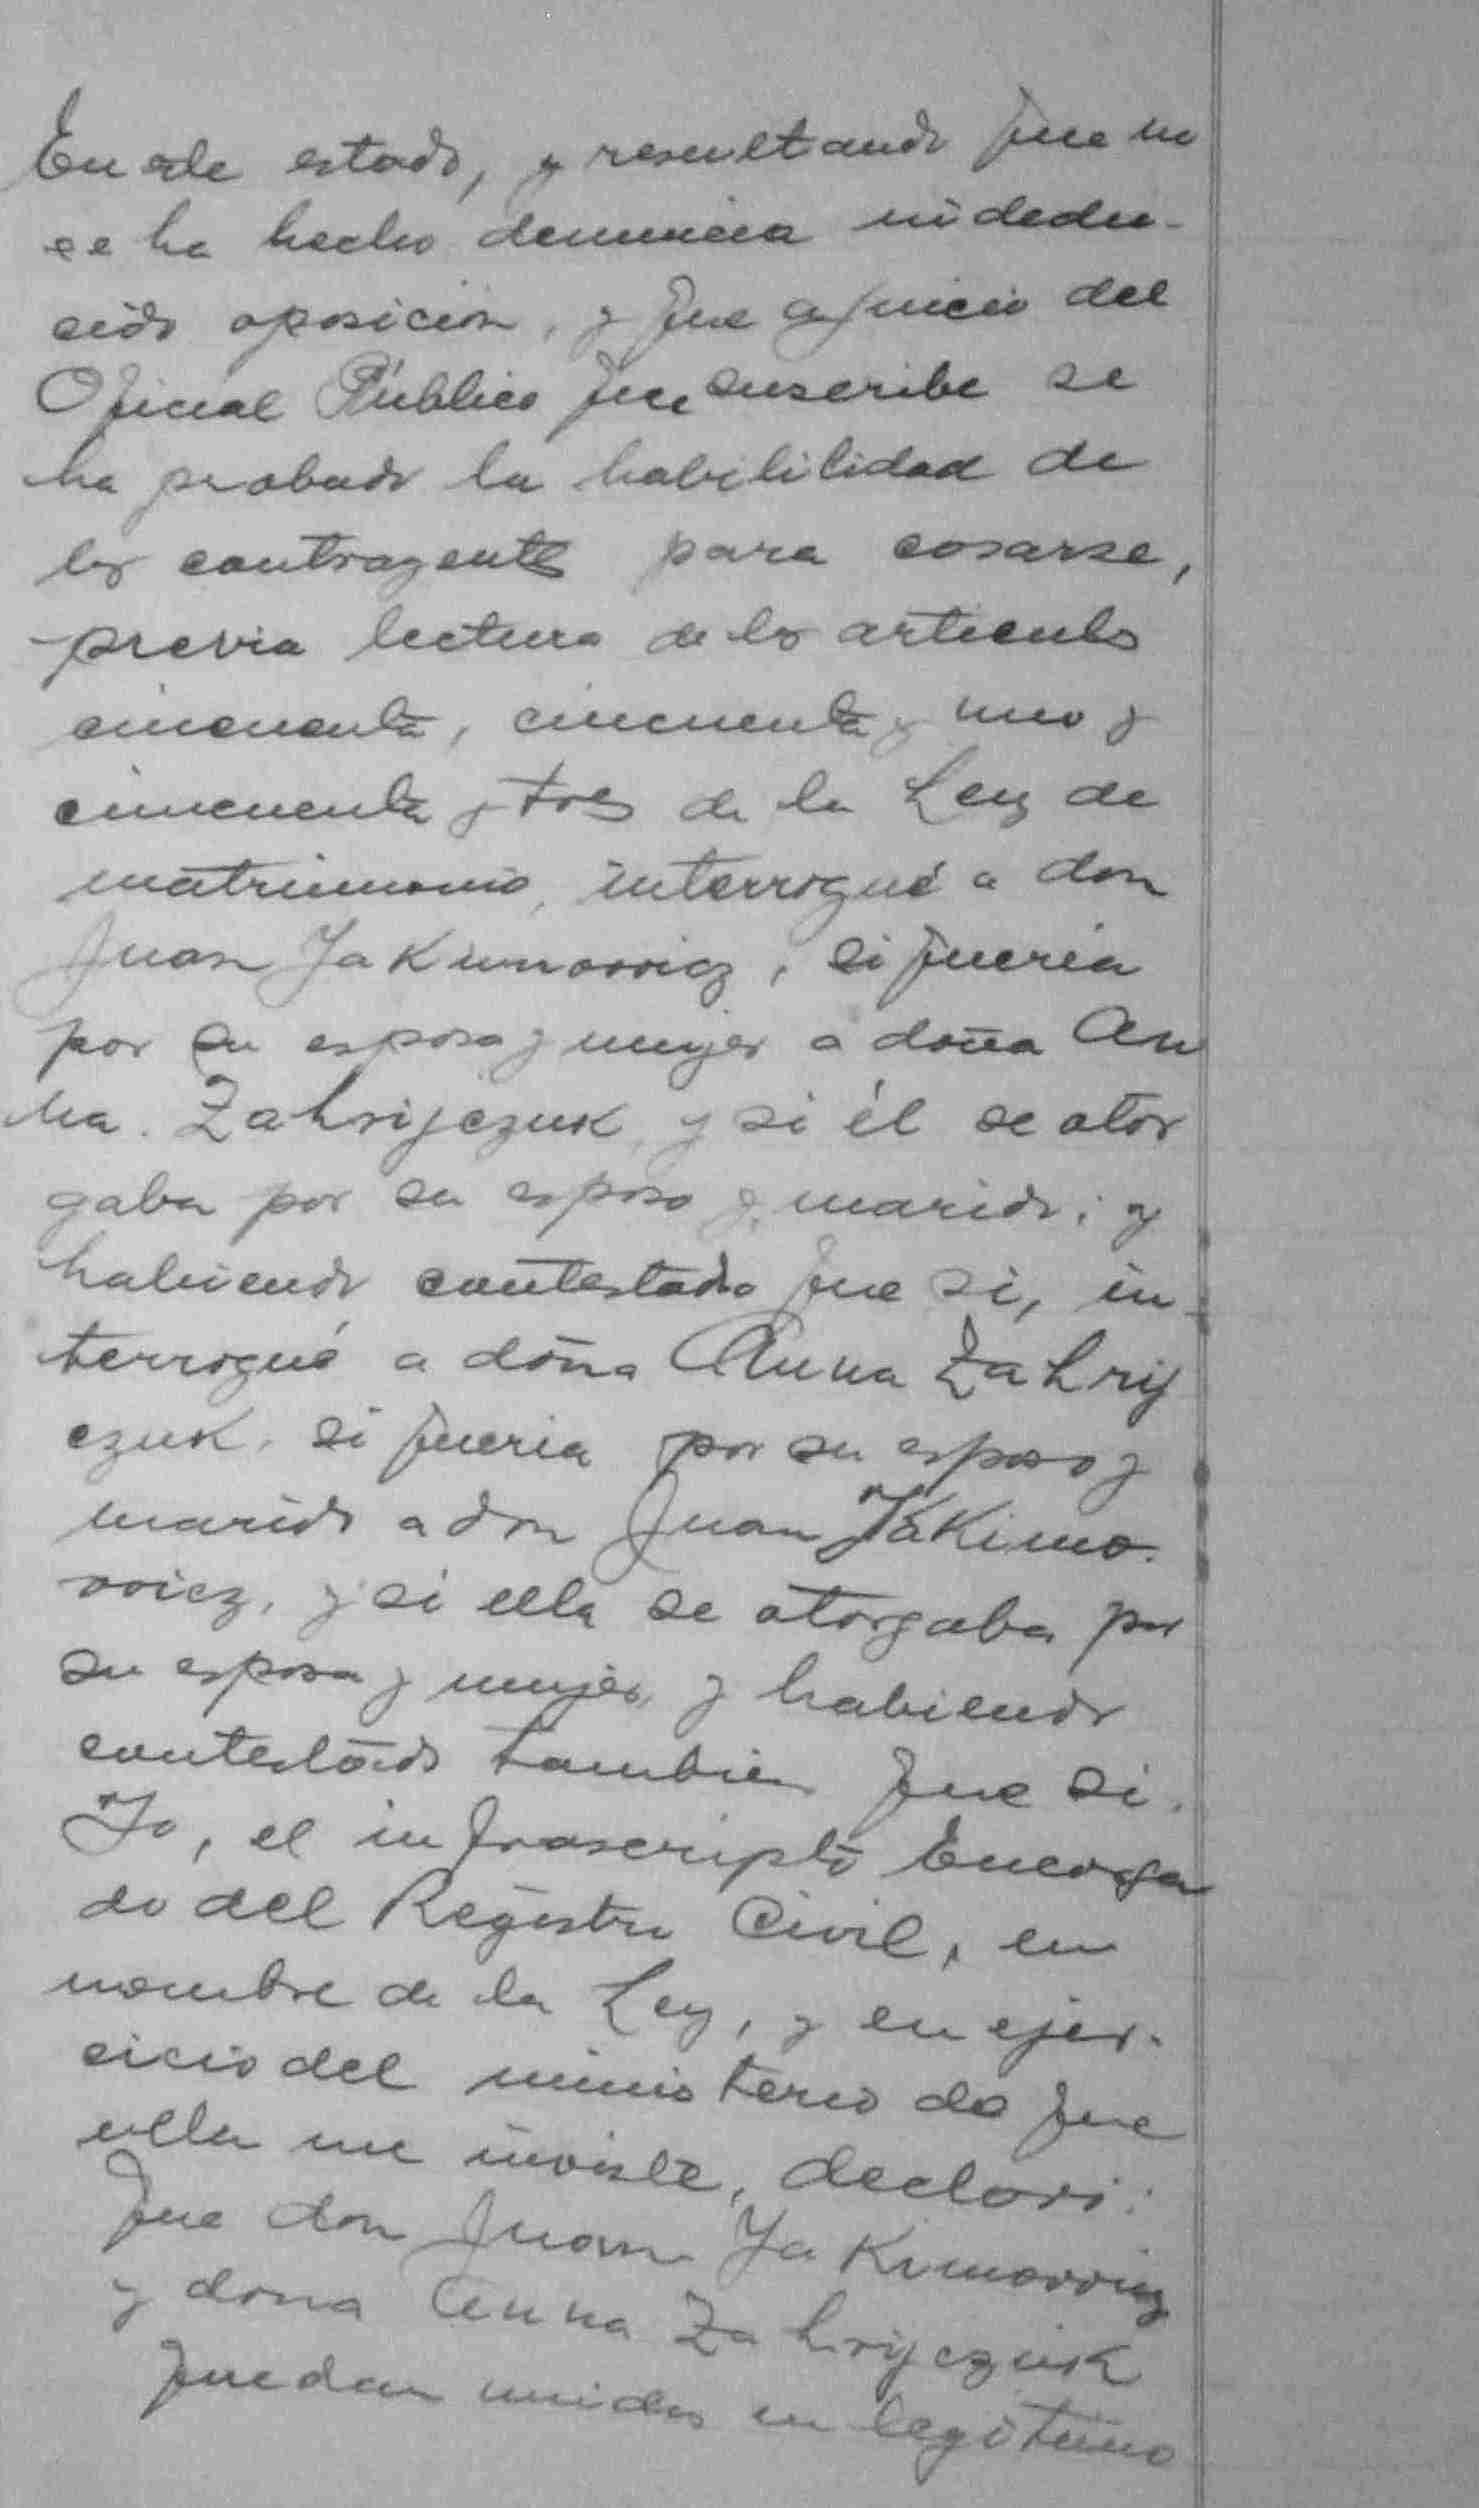 En este estado, y resultando que no
se ha hecho denuncia ni dedu-
cido oposición, y que a juicio del
Oficial Público que suscribe se
ha probado la habililidad de
los contrayentes para casarse,
previa lectura de los articulos
cincuenta, cincuenta y uno y
cincuenta y tres de la Ley de
matrimonio, interrogué a don
Juan Jakimowicz, si queria
por su esposa y mujer a doña An
na. Zahrijczuk y si él se otor
gaba por su esposo y marido; y
habiendo contestado que si, in-
terrogué a doña Anna Zahrij
czuk, si queria por su esposo y
marido a don Juan Jakimo-
wicz, y si ella se otorgaba por
su esposa y mujer, y habiendo
contestado tambien que si.
Yo, el infrascripto Encarga
do del Registro Civil, en
nombre de la Ley, y en ejer-
cicio del ministerio de que
ella me inviste, declaro:
Que don Juan Jakimowicz
y dona Anna Zahrijczuk
quedan unidos en legitimo